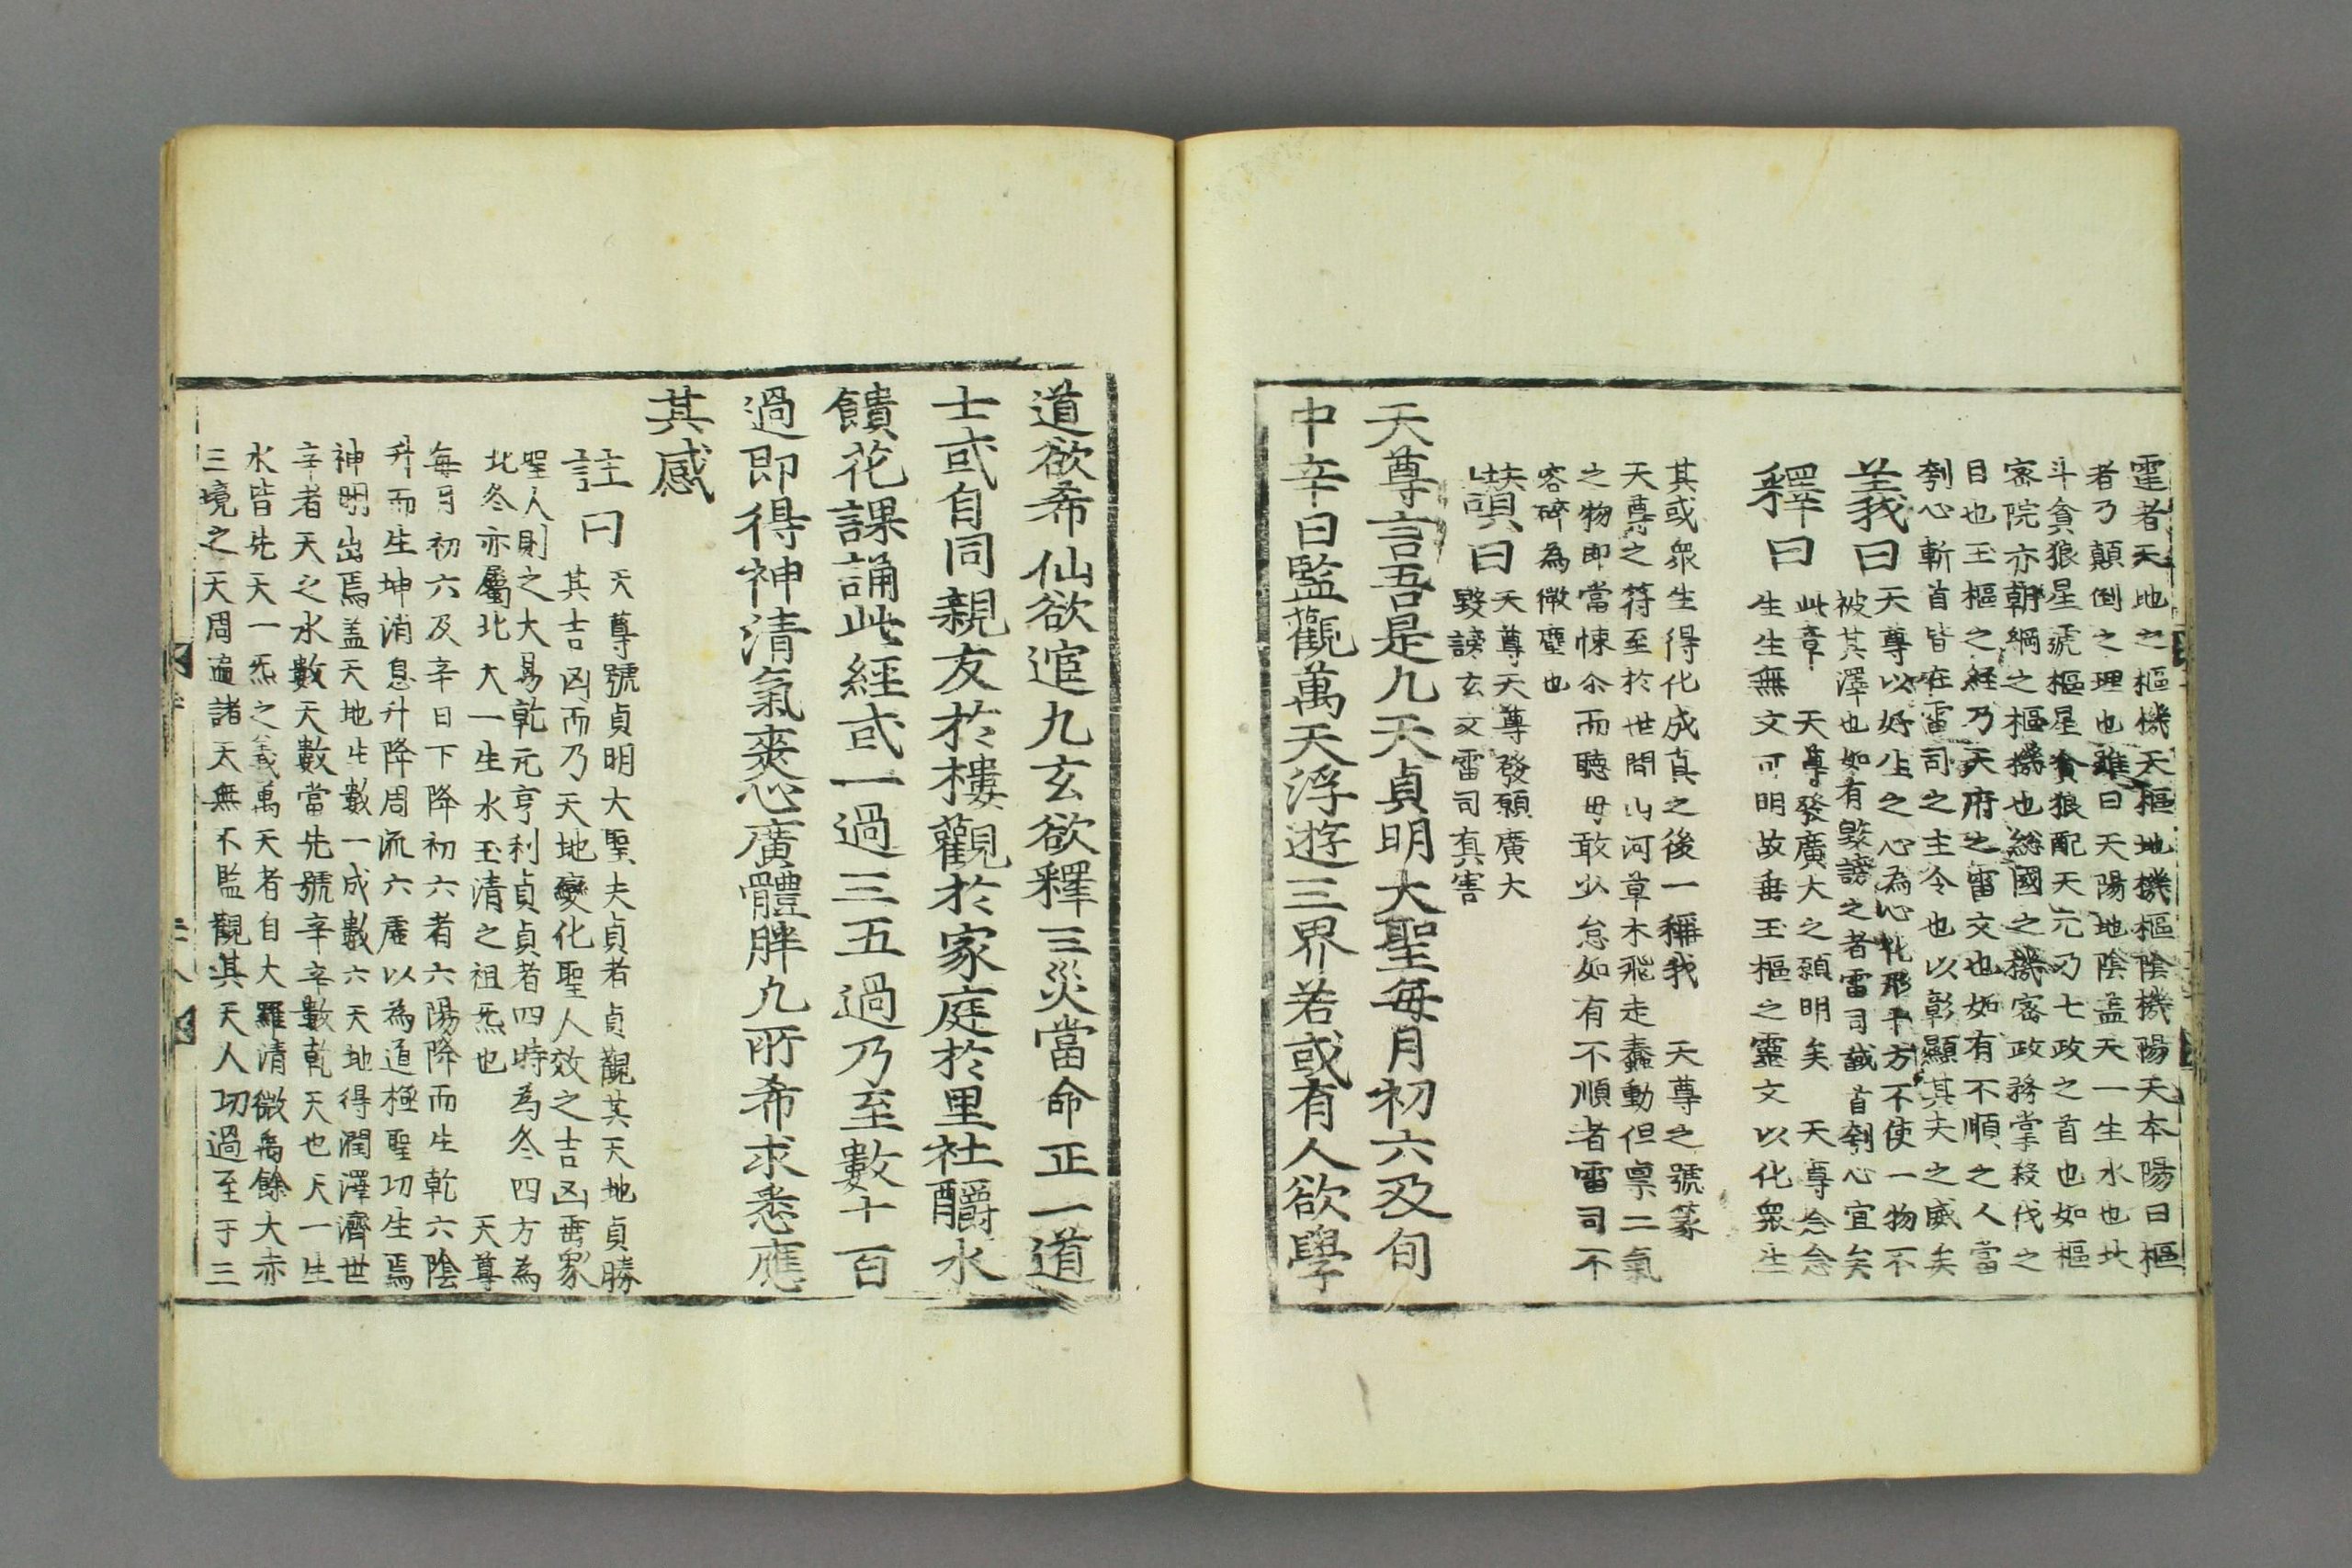 霆者天地之樞機天樞地機樞陰機陽天本陽曰樞
者乃顛倒之理也雖曰天陽地陰盖天一生水也北
斗貪狼星號樞星貪狼配天元乃七政之首也如樞
宻院亦朝綱之樞機也総國之機宻政務掌殺伐之
目也玉樞之経乃天府之雷文也如有不順之人當
刳心斬首皆在雷司之主令也以彰顯其夫之威矣
義曰
天尊以好生之心為心化形十方不使一物不
被其澤也如有毀謗之者雷司馘首刳心宜矣
釋曰
此章 天尊發廣大之願明矣 天尊念念
生生無文可明故垂玉樞之靈文以化衆生
其或衆生得化成真之後一稱我 天尊之號篆
天尊之符至於世間山河草木飛走蠢動但禀二氣
之物即當悚尒而聽毋敢少怠如有不順者雷司不
容碎為微塵也
讃曰
天尊天尊發願廣大
毀謗玄文雷司真害
天尊言吾是九天貞明大聖每月初六及旬
中辛日監觀萬天浮遊三界若或有人欲學
道欲希仙欲逭九玄欲釋三災當命正一道
士或自同親友於樓觀於家庭於里社酹水
饋花課誦此經或一過三五過乃至數十百
過即得神清氣爽心廣體胖凡所希求悉應
其感
註曰
天尊號貞明大聖夫貞者貞觀其天地貞勝
其吉凶而乃天地變化聖人效之吉凶垂象
聖人則之大易乾元亨利貞貞者四時為冬四方為
北冬亦屬北大一生水玉清之祖炁也 天尊
每月初六及辛日下降初六者六陽降而生乾六陰
升而生坤消息升降周流六虛以為道極聖功生焉
神明出焉盖天地生數一成數六天地得潤澤濟世
辛者天之水數天數當先號辛辛數乾天也天一生
水皆先天一炁之義萬天者自大羅清微禹餘大赤
三境之天周遍諸天無不監觀其天人功過至于三